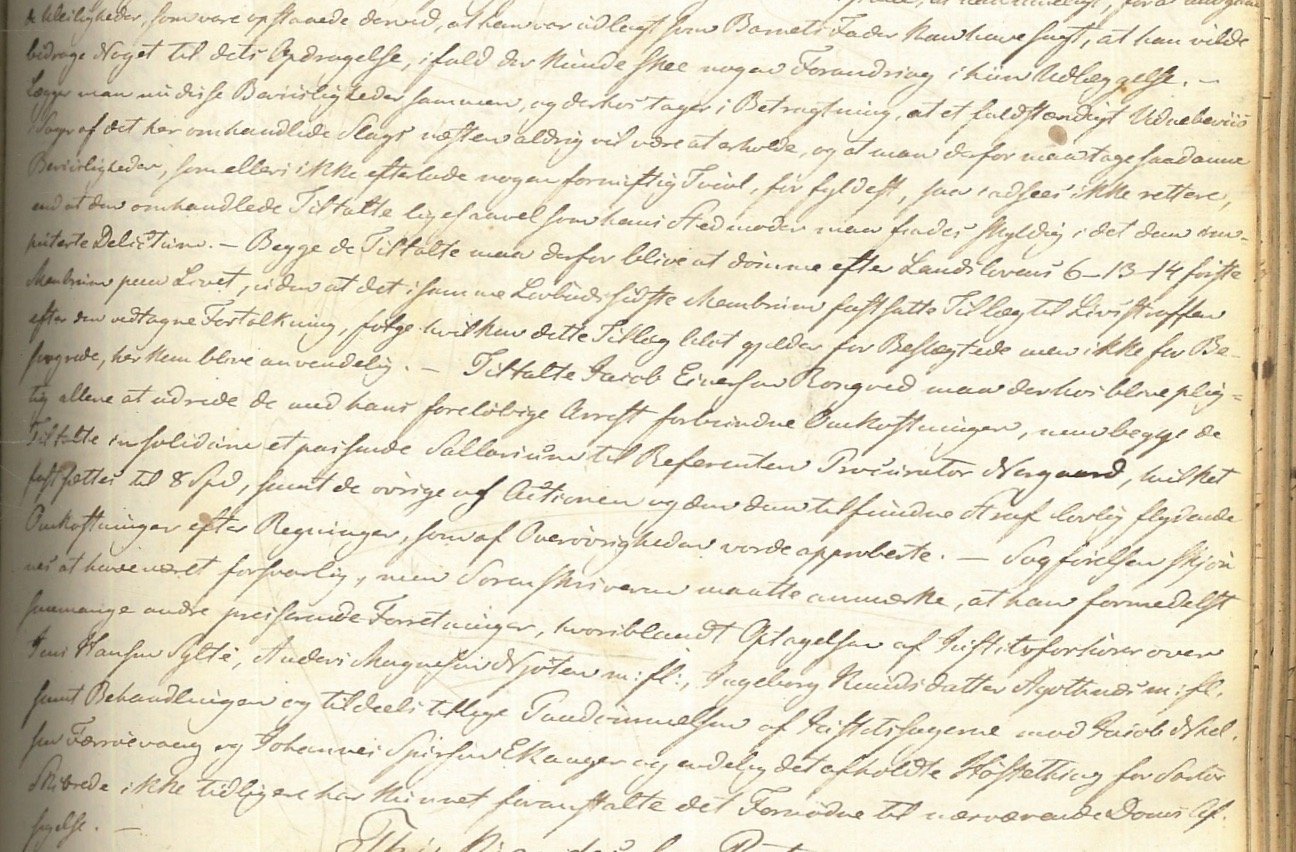 deleiligheder, som vare opstaaede derved, at han var udlagt som Barnets Fader kan have sagt, at han vilde
bidrage Noget til dets Opdragelse, ifald der kunde skee nogen Forandring i hiin Udlæggelse. —
Lægger man nu disse Beviisligheder sammen, og derhos tager i Betragtning, at et fuldstændigt Vidnebeviis
i Sager af det her omhandlede Slags næsten aldrig vil være at erholde, og at man derfor maa tage saadanne
Beviisligheder, som ellers ikke efterlade nogen fornuftig Tvivl, for fyldest, saa indsees ikke rettere,
end at den omhandlede Tiltalte ligesaavel som hans Stedmoder maa findes skyldig i det dem im-
puterte Delictum. — Begge de Tiltalte maa derfor blive at dømme efter Landslovens 6–13–14 første
Membrum paa Livet, uden at det i samme Lovbuds sidste Membrum fastsatte Tillæg til Livsstraffen
efter den vedtagne Fortolkning, følge hvilken dette Tillæg blot gjelder for Beslægtede men ikke for Be-
svogrede, her kan blive anvendelig. — Tiltalte Jacob Eversen Rongved maa derhos blive plig-
tig allene at udrede de med hans foreløbige Arrest forbundne Omkostninger, men begge de
Tiltalte in solidum et passende Sallarium til Referenten Procurator Nergaard, hvilket
fastsættes til 8 Spd, samt de øvrige af Actionen og den dem tilfundne Straf lovlig flydende
Omkostninger efter Regninger, som af Overøvrigheden vorde approberte. — Sagførelsen skjøn-
nes at have været forsvarlig, men Sorenskriveren maatte anmærke, at han formedelst
saamange andre presserende Forretninger, hvoriblandt Optagelsen af Justitsforhører over
Jens Hansen Sylte, Anders Magnesen m: fl:, Ingeborg Knudsdatter m: fl.
samt Behandlingen og tildeels tillige Paadømmelsen af Justitssagerne mod Jacob
sen og Johannes Ekanger og endelig det afholdte Høstething for
Skibrede ikke tidligere har kunnet foranstalte det Fornødne til nærværende Doms Af-
sigelse. —